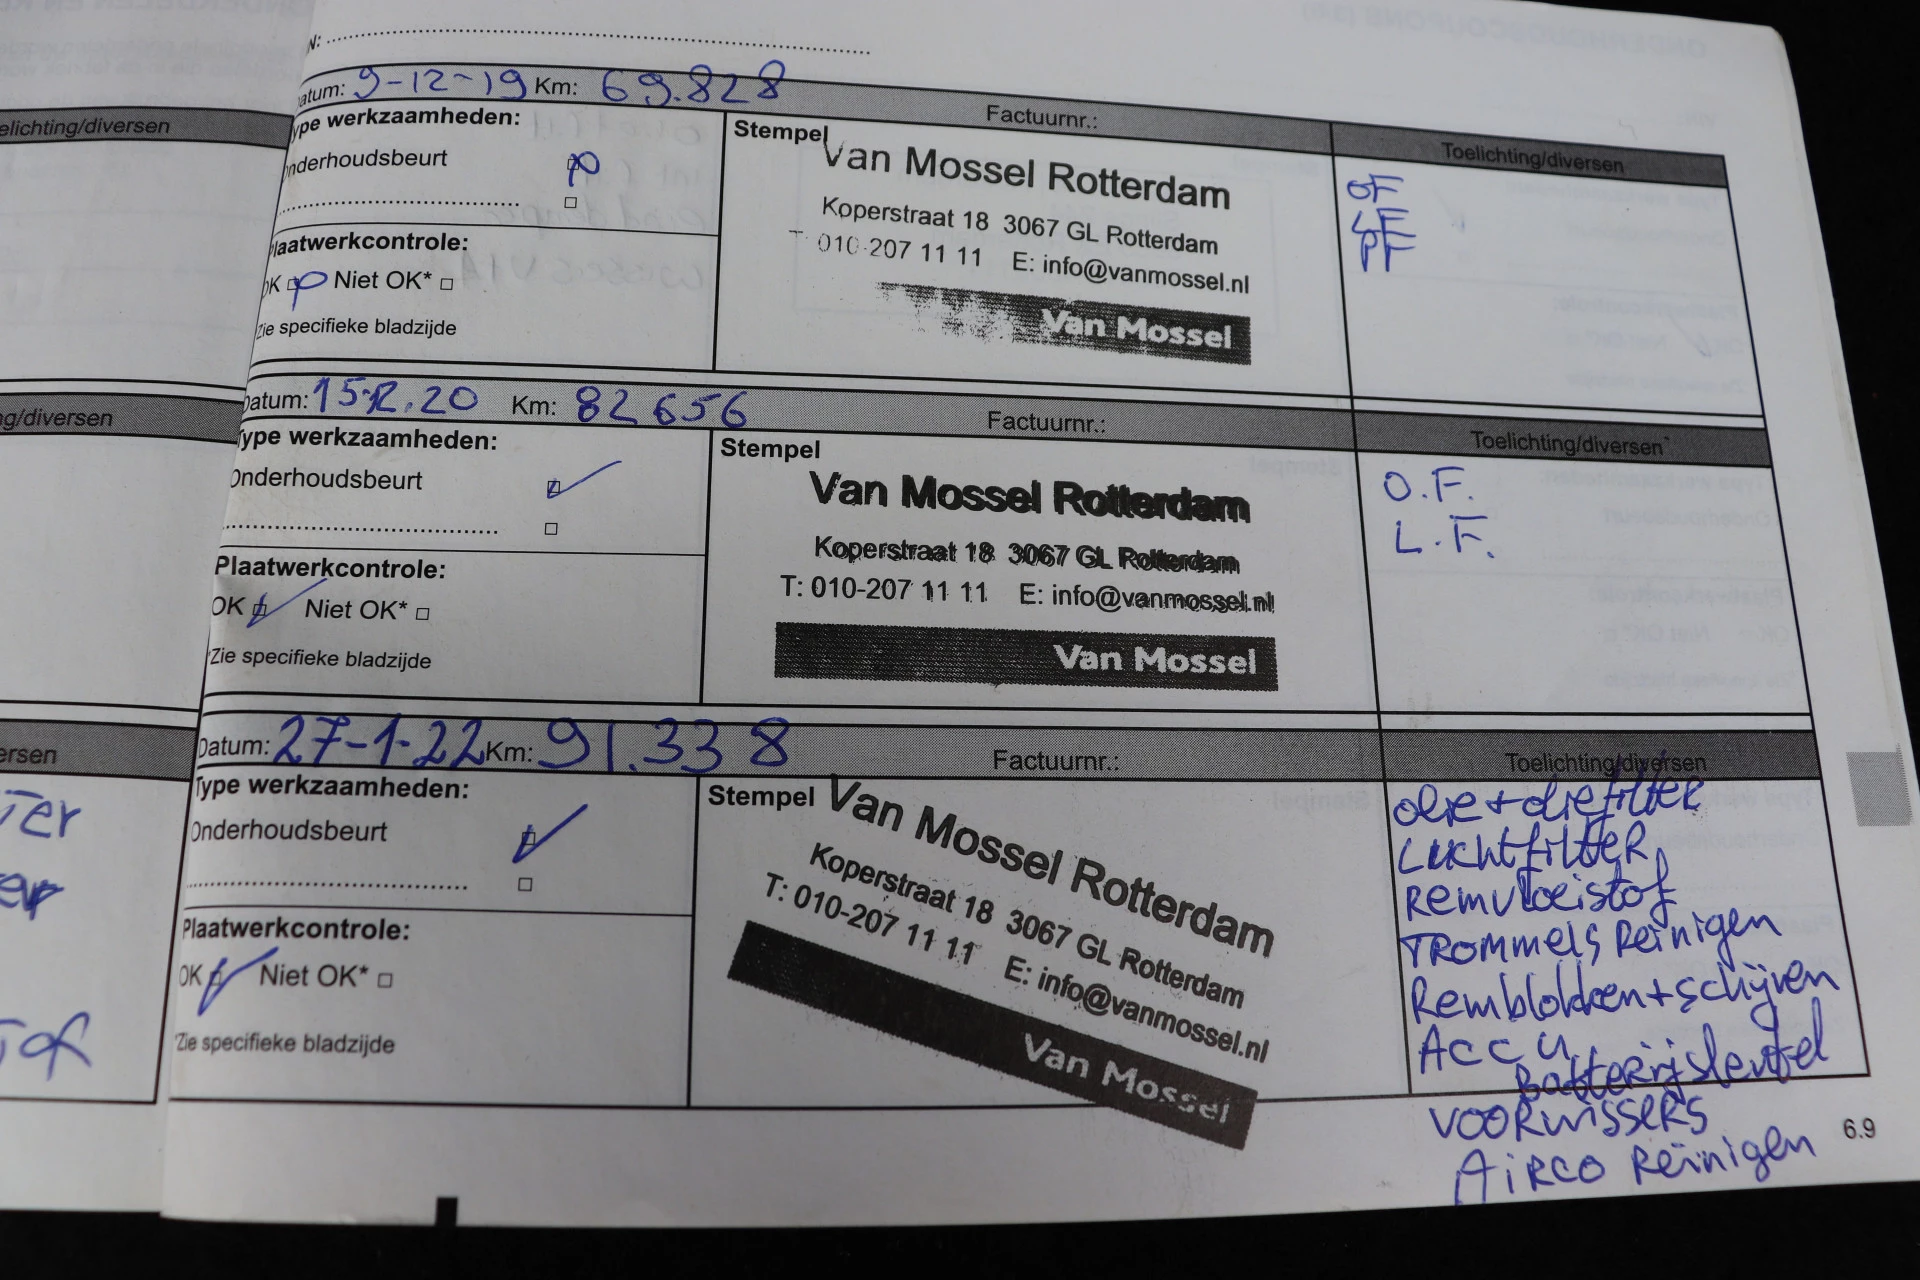 N:
Datum: 9-12-19 Km: 69.828 Factuurnr.: Toelichting/diversen
Type werkzaamheden:
Onderhoudsbeurt
Plaatwerkcontrole:
OK Niet OK*
*Zie specifieke bladzijde
Stempel
Van Mossel Rotterdam
Koperstraat 18 3067 GL Rotterdam
T: 010-207 11 11 E: info@vanmossel.nl
Van Mossel
OF
LF
PF
Datum: 15-12.20 Km: 82656 Factuurnr.: Toelichting/diversen
Type werkzaamheden:
Onderhoudsbeurt
Plaatwerkcontrole:
OK Niet OK*
*Zie specifieke bladzijde
Stempel
Van Mossel Rotterdam
Koperstraat 18 3067 GL Rotterdam
T: 010-207 11 11 E: info@vanmossel.nl
Van Mossel
O.F.
L.F.
Datum: 27-1-22 Km: 91.338 Factuurnr.: Toelichting/diversen
Type werkzaamheden:
Onderhoudsbeurt
Plaatwerkcontrole:
OK Niet OK*
*Zie specifieke bladzijde
Stempel
Van Mossel Rotterdam
Koperstraat 18 3067 GL Rotterdam
T: 010-207 11 11 E: info@vanmossel.nl
Van Mossel
olie + oliefilter
Luchtfilter
Remvloeistof
Trommels Reinigen
Remblokken + schijven
Accu
Batterijsleutel
voorwissers
Airco Reinigen
6.9